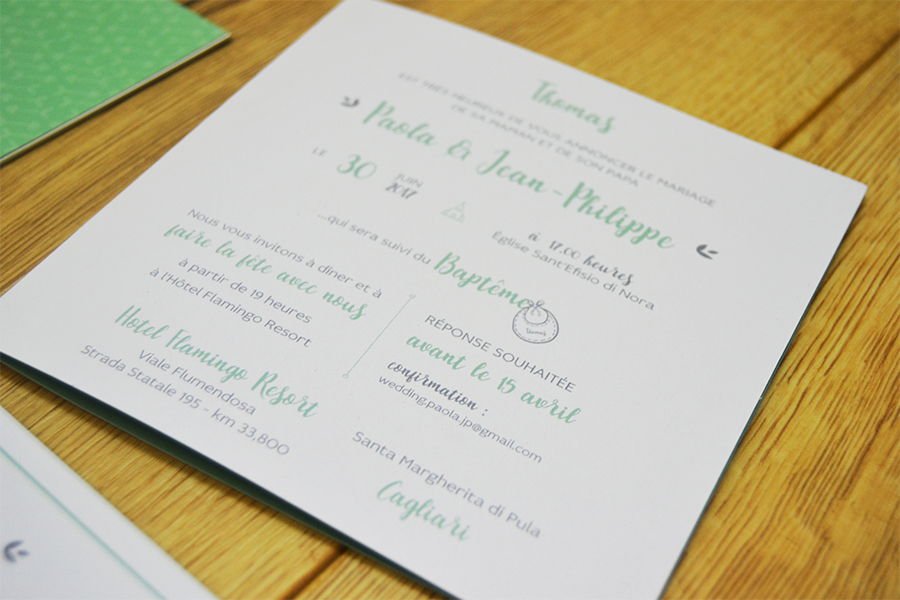 Thomas
EST TRÈS HEUREUX DE VOUS ANNONCER LE MARIAGE
DE SA MAMAN ET DE SON PAPA
Paola & Jean-Philippe
LE 30 JUIN 2017
à 17.00 heures
Eglise Sant'Efisio di Nora
...qui sera suivi du Baptême
Thomas
Nous vous invitons à dîner et à
faire la fête avec nous
à partir de 19 heures
à l'Hôtel Flamingo Resort
Hotel Flamingo Resort
Viale Flumendosa
Strada Statale 195 - km 33,800
RÉPONSE SOUHAITÉE
avant le 15 avril
confirmation :
wedding.paola.jp@gmail.com
Santa Margherita di Pula
Cagliari